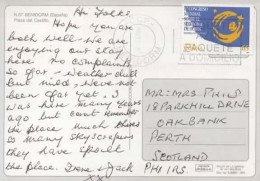 FLAT BENIDORM (España)
Playa de
Hi Folks
Hope you are
both well. We are
enjoying our stay
here. No complaints
so far - weather dull
but warm. Have not
been far yet. I
was here many years
ago but cannot remember
the place much. Shows
so many sky scrapers
they have spoilt
the place. Irene & Jack
xx
CONGRESO
PAQUETE
A DOMICILIO
MR & MRS PHINS
18 PARKHILL DRIVE
OAKBANK
PERTH
SCOTLAND
PH1 1RS